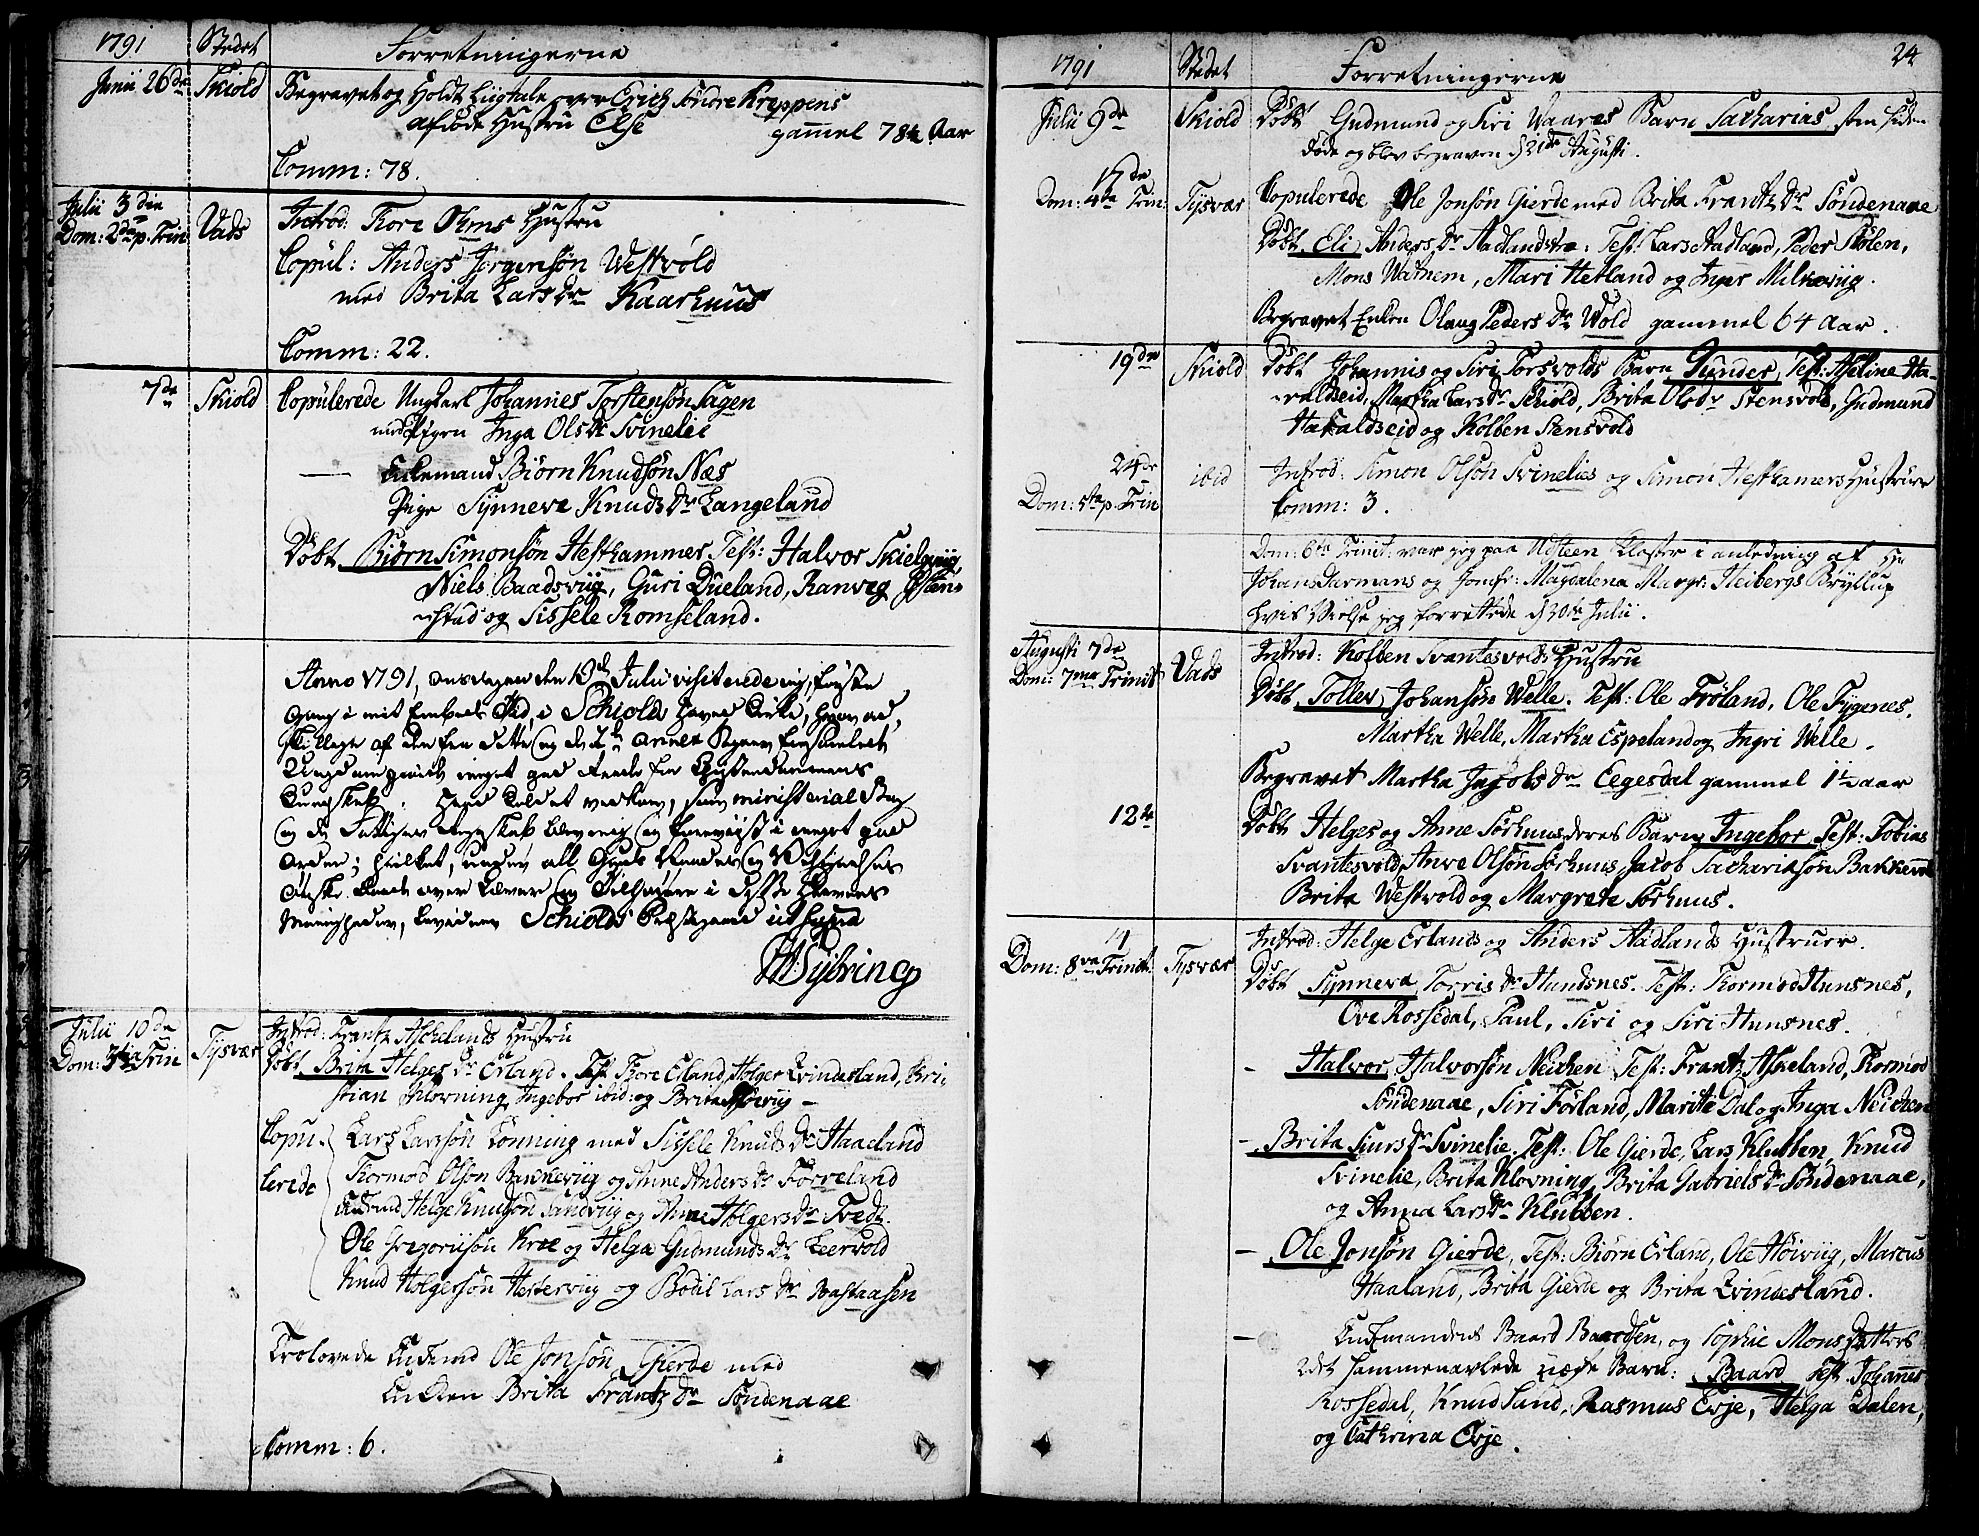 1791 Stedet Forretningerne
Junii 26de Skiold Begravet og Holdt Liigtale over Erich Søndre Kreppens
afdøde Hustru Else gamel 78½ Aar
Comm: 78.
Julii 3die
Dom: 2da p. Trin Vads Introd: Tore Ølms Hustru
Copul: Anders Jørgensøn Westvold
med Brita Lars Dr Kaarhuus
Comm: 22.
7de Skiold Copulerede Ungkarl Johannes Torstensøn Sagen
med Pigen Inga Ols Dr Svinelie
Enkemand Biørn Knudsøn Næs
Pige Synneve Knuds Dr Langeland
Døbt Biørn Simonsøn Hesthammer Test: Halvor Skielgviig,
Niels Baadsviig, Guri Dueland, Ranveg Østen-
stad og Sissele Romseland.
Anno 1791, Onsdagen den 10de Julii visiterede jeg, første
Gang i mit Embeds Tid, i Schiolds Hoved Kirke, hvor ad,
skillige af den fra dette og de 2de Annexer Sogner forsamlede
Ungdom
Kundskab. ministerial Bog
Orden; hvilket, under all Guds
Menigheder, bevidner Schiolds Præstegaard ut supra
Julii 10da
Dom: 3tia Trin Tysvær Introd: Frantz Aschelands Hustru
Døbt Brita Helges Dr Erland. Test Tore Erland, Holger Qvindesland, Kri-
stian Klovning, Ingebor ibid: og Brita Høiviig
Copu- Lars Larssøn Lønning med Sissele Knuds Dr Haaeland
lerede Tormod Olsøn Banneviig og Anne Anders Dr Førreland
Enkemd Helge Knudsøn Sandviig og Anne Holgers Dr Tvedt.
Ole Gregoriisøn Kroe og Helga Gudmunds Dr Leervold
Knud Holgersøn Hesterviig og Bodil Lars Dr Nastaasen
Trolovede Enkemd Ole Jonsøn Gierde med
Enken Brita Frantz Dr Søndenaae
Comm: 6.
1791 Stedet Forretningerne 24
Julii 9de Skiold Døbt Gudmund og Siri Waares Barn Sacharias som siden
døde og blev begraven d 21de Augusti.
17de
Dom: 4ta Trin: Tysvær Copulerede Ole Jonsøn Gierde med Brita Frantz Dr Søndenaae
Døbt Eli Anders Dr Aadlandstræ: Test: Lars Aadland, Peder Stølen,
Mons Watnem, Mari Hetland og Inger Milreviig.
Begravet Enken Olaug Peders Dr Wold gammel 64 Aar.
19de Skiold Døbt Johannis og Siri Torsvolds Barn Gunder, Test: Asseline Ha-
raldseid, Martha Lars Dr Schiold, Brita Ols Dr Stensvold, Gudmund
Haraldseid og Kolben Stensvold
24de
Dom: 5ta p. Trin ibid Introd: Simon Olsøn Svinelies og Simon Hesthamers Hustruer
Comm: 3.
Dom: 6ta Trinit: var jeg paa Utsteen Kloster i anledning af Hr
Johan Garmans og Jomfr: Magdalena Margr: Heibergs Bryllup
Hvis Vielse jeg forrettede d 30te Julii.
Augusti 7da
Dom: 7ma Trinit Vads Introd: Kolben Svantesvolds Hustru
Døbt Tollev Johansøn Welle. Test: Ole Frøland, Ole Fygenes,
Martha Welle, Martha Espeland og Ingri Welle.
Begravet Martha Jacobs Dr Eegesdal gammel 1½ aar
12te Døbt Helges og Anne Sørhuus deres Barn Ingebor, Test: Tobias
Svantesvold, Anve Olsøn Sørhuus Jacob Sacharisøn Bakken
Brita Westvold og Margrete Sørhuus.
14
Dom: 8va Trinit: Tysvær Introd: Helge Erlands og Anders Aadlands Hustruer.
Døbt Synneva Torris Dr Hundsnes. Test: Thormod Hunsnes,
Ove Rossedal, Paul, Siri og Siri Hunsnes.
- Halvor Halvorsøn Neichen Test: Frantz Askeland, Thormod
Søndenaae, Siri Førland, Marite Dal og Inga Neichen
- Brita Siurs Dr Svinelie. Test: Ole Gierde, Lars Klubben, Knud
Svinelie, Brita Klovning, Brita Gabriels Dr Søndenaae,
og Anna Lars Dr Klubben.
- Ole Jonsøn Gierde, Test: Biørn Erland, Ole Høiviig, Marcus
Haaland, Brita Gierde og Brita Qvindesland.
- Enkemanden Baard Baardsen, og Sophie Mons Datters
sammenavlede uægte Barn: Baard Test Johannes
Rossedal, Knud Sund, Rasmus Evje, Helga Dalen,
og Cathrina Evje.